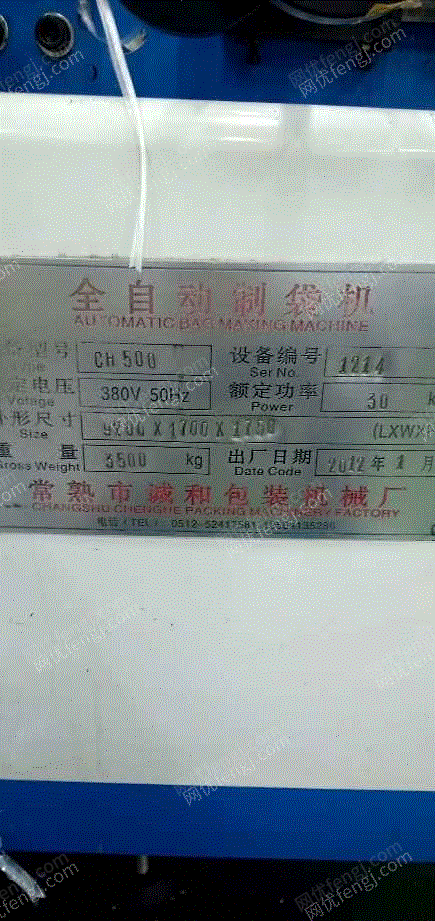 全自动制袋机
AUTOMATIC BAG MAXING MACHINE
型号 CH 500 设备编号 1214
Ser No.
定电压 380V 50Hz 额定功率 30 k
Votage Power
形尺寸 X 1700 X 1750 (LXWX
Size
重量 3500 kg 出厂日期 2012年1月
ross Weight Date Code
常熟市诚和包装机械厂
CHANGSHU CHENGHE PACKING MACHINERY FACTORY
电话(TEL): 0512-52417581
网优fengj.com